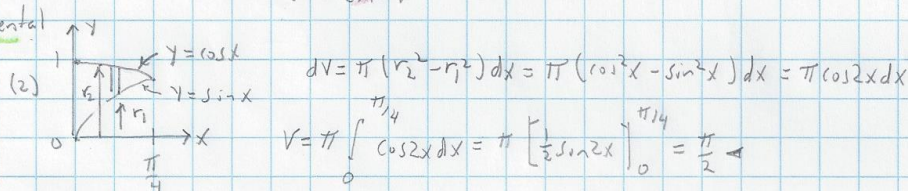 ental
Y
1
y = cosx
(2)
r₂
y = sinx
r₁
0
x
π/4
dV = π (r₂² - r₁²) dx = π (cos²x - sin²x) dx = π cos2x dx
V = π ∫₀^{π/4} cos2x dx = π [½ sin2x]₀^{π/4} = π/2